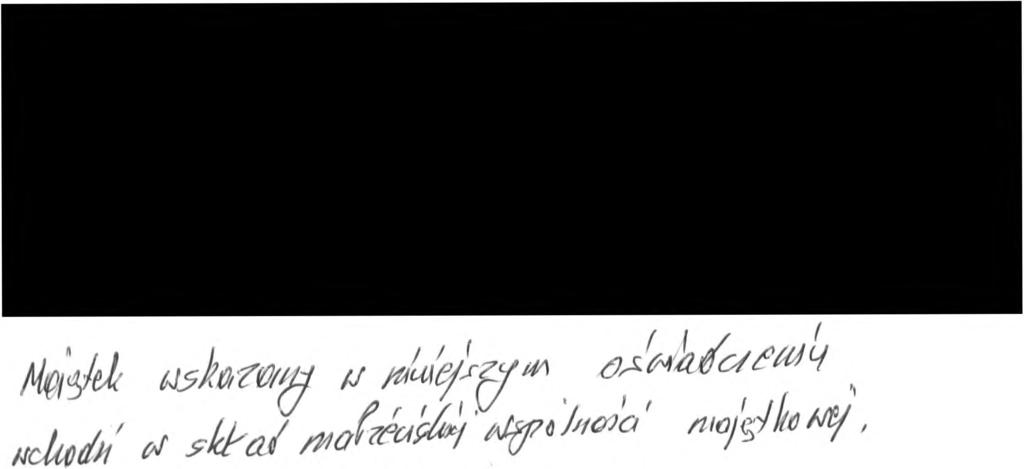 Majątek wskazany w niniejszym oświadczeniu
wchodzi w skład małżeńskiej wspólności majątkowej.